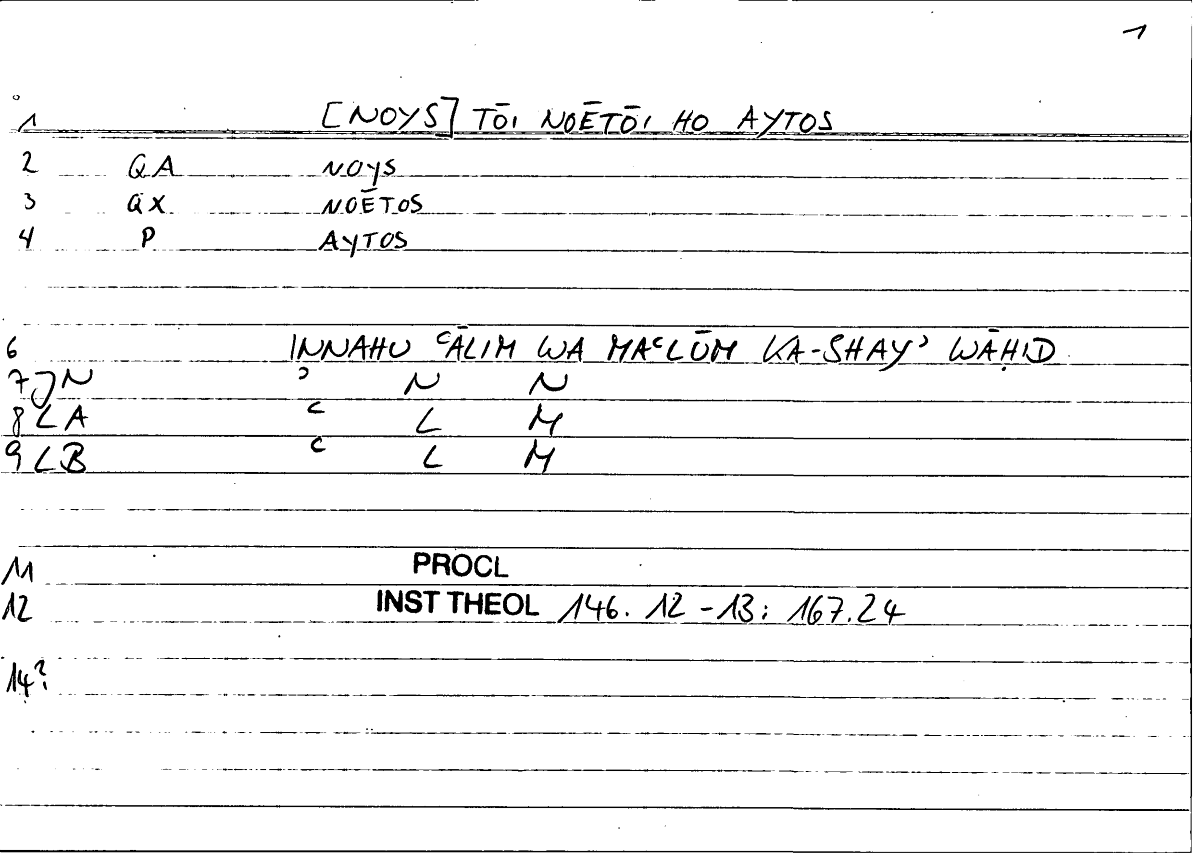 1
1 [NOYS] TŌI NOĒTŌI HO AYTOS
2 QA NOYS
3 QX NOĒTOS
4 P AYTOS
6 INNAHU ʿĀLIM WA MAʿLŪM KA-SHAYʾ WĀḤID
7 JN ʾ N N
8 LA ʿ L M
9 LB ʿ L M
11 PROCL
12 INST THEOL 146. 12-13; 167.24
14?